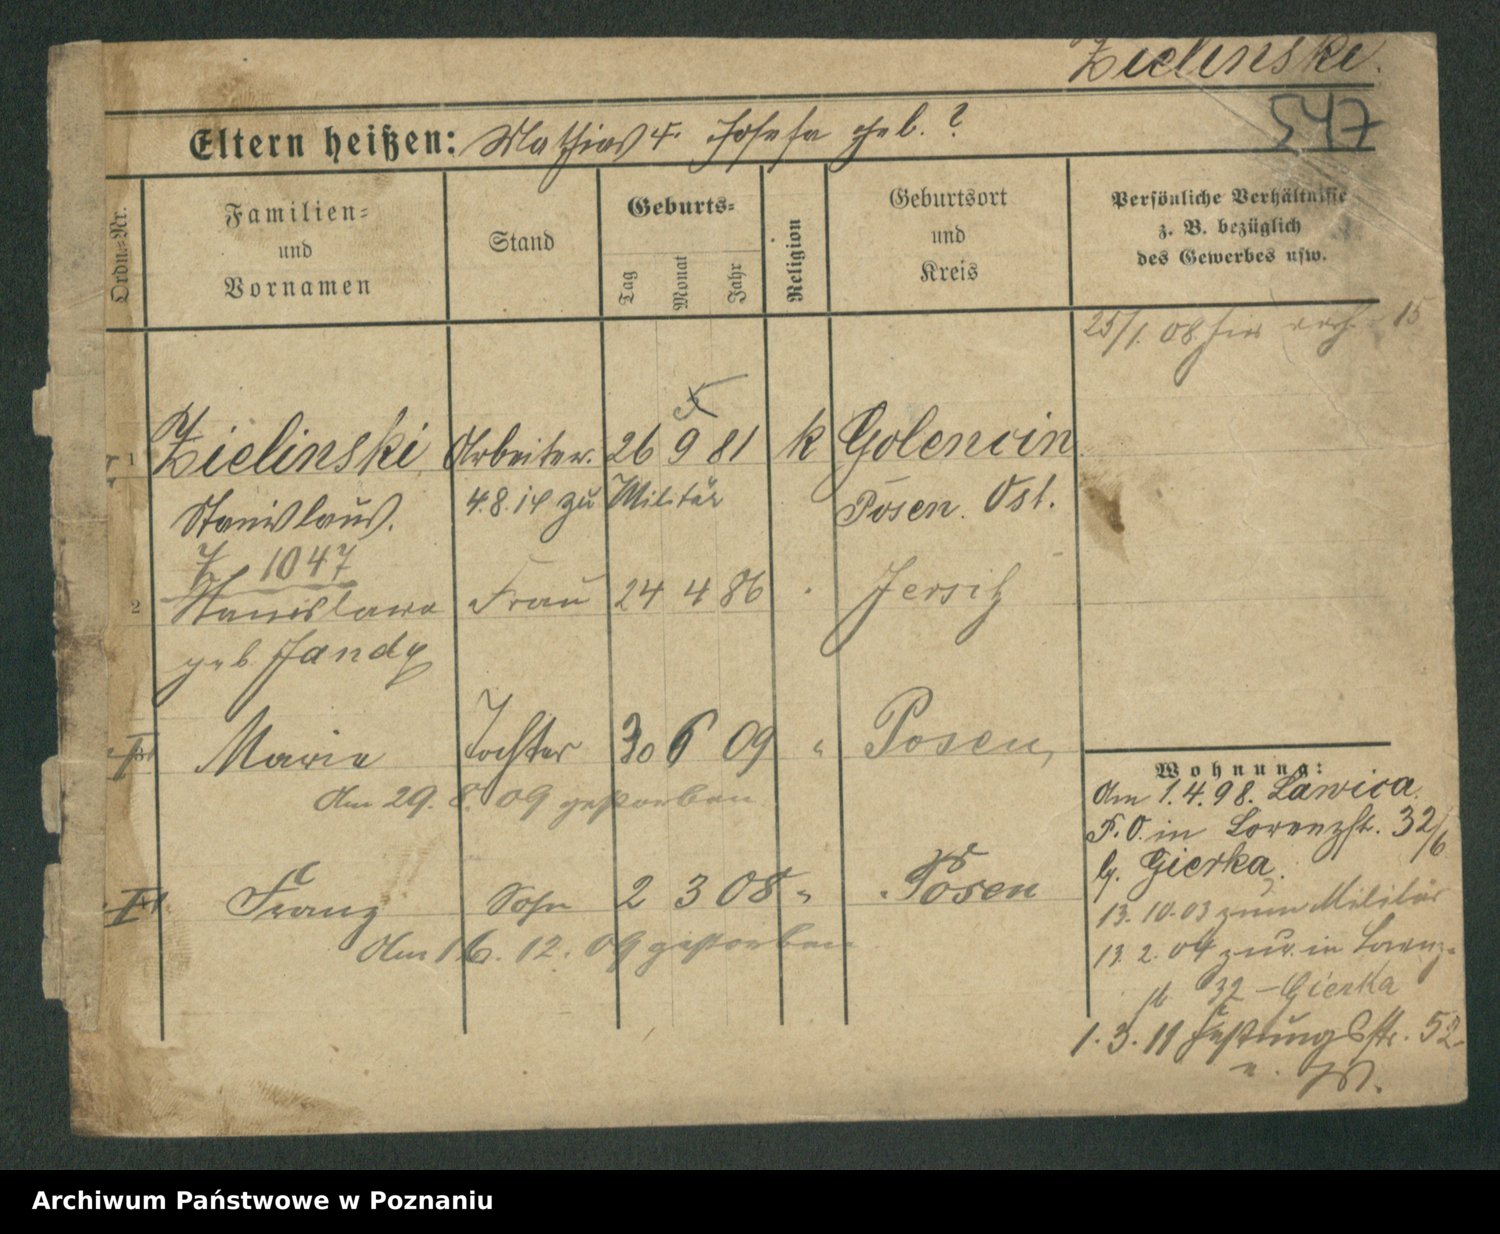 Zielinski.
547
Eltern heißen: Mathias u. Josefa geb. ?
Ordn.-Nr.
Familien-
und
Vornamen
Stand
Geburts-
Tag
Monat
Jahr
Religion
Geburtsort
und
Kreis
Persönliche Verhältnisse
z. B. bezüglich
des Gewerbes usw.
25/1. 08 hier 15
1 Zielinski Arbeiter. 26 9 81 k Golencin
Stanislaus. 4.8.14 zu Militär Posen. Ost.
1047
2 Stanislawa Frau 24 4 86 Jersitz
geb.
Marie Tochter 30 6 09 " Posen
Am 29. 8. 09 gestorben
Franz Sohn 2 3 08 " Posen
Am 16. 12. 09 gestorben
Wohnung:
Am 1.4.98. Lawica
P.O. in Lorenzstr. 32/6
b. Gierka.
13. 10. 03 zum Militär
13. 2. 04 zur. in Lorenz-
str 32 - Gierka
1. 3. 11 Festungsstr. 52
Archiwum Państwowe w Poznaniu